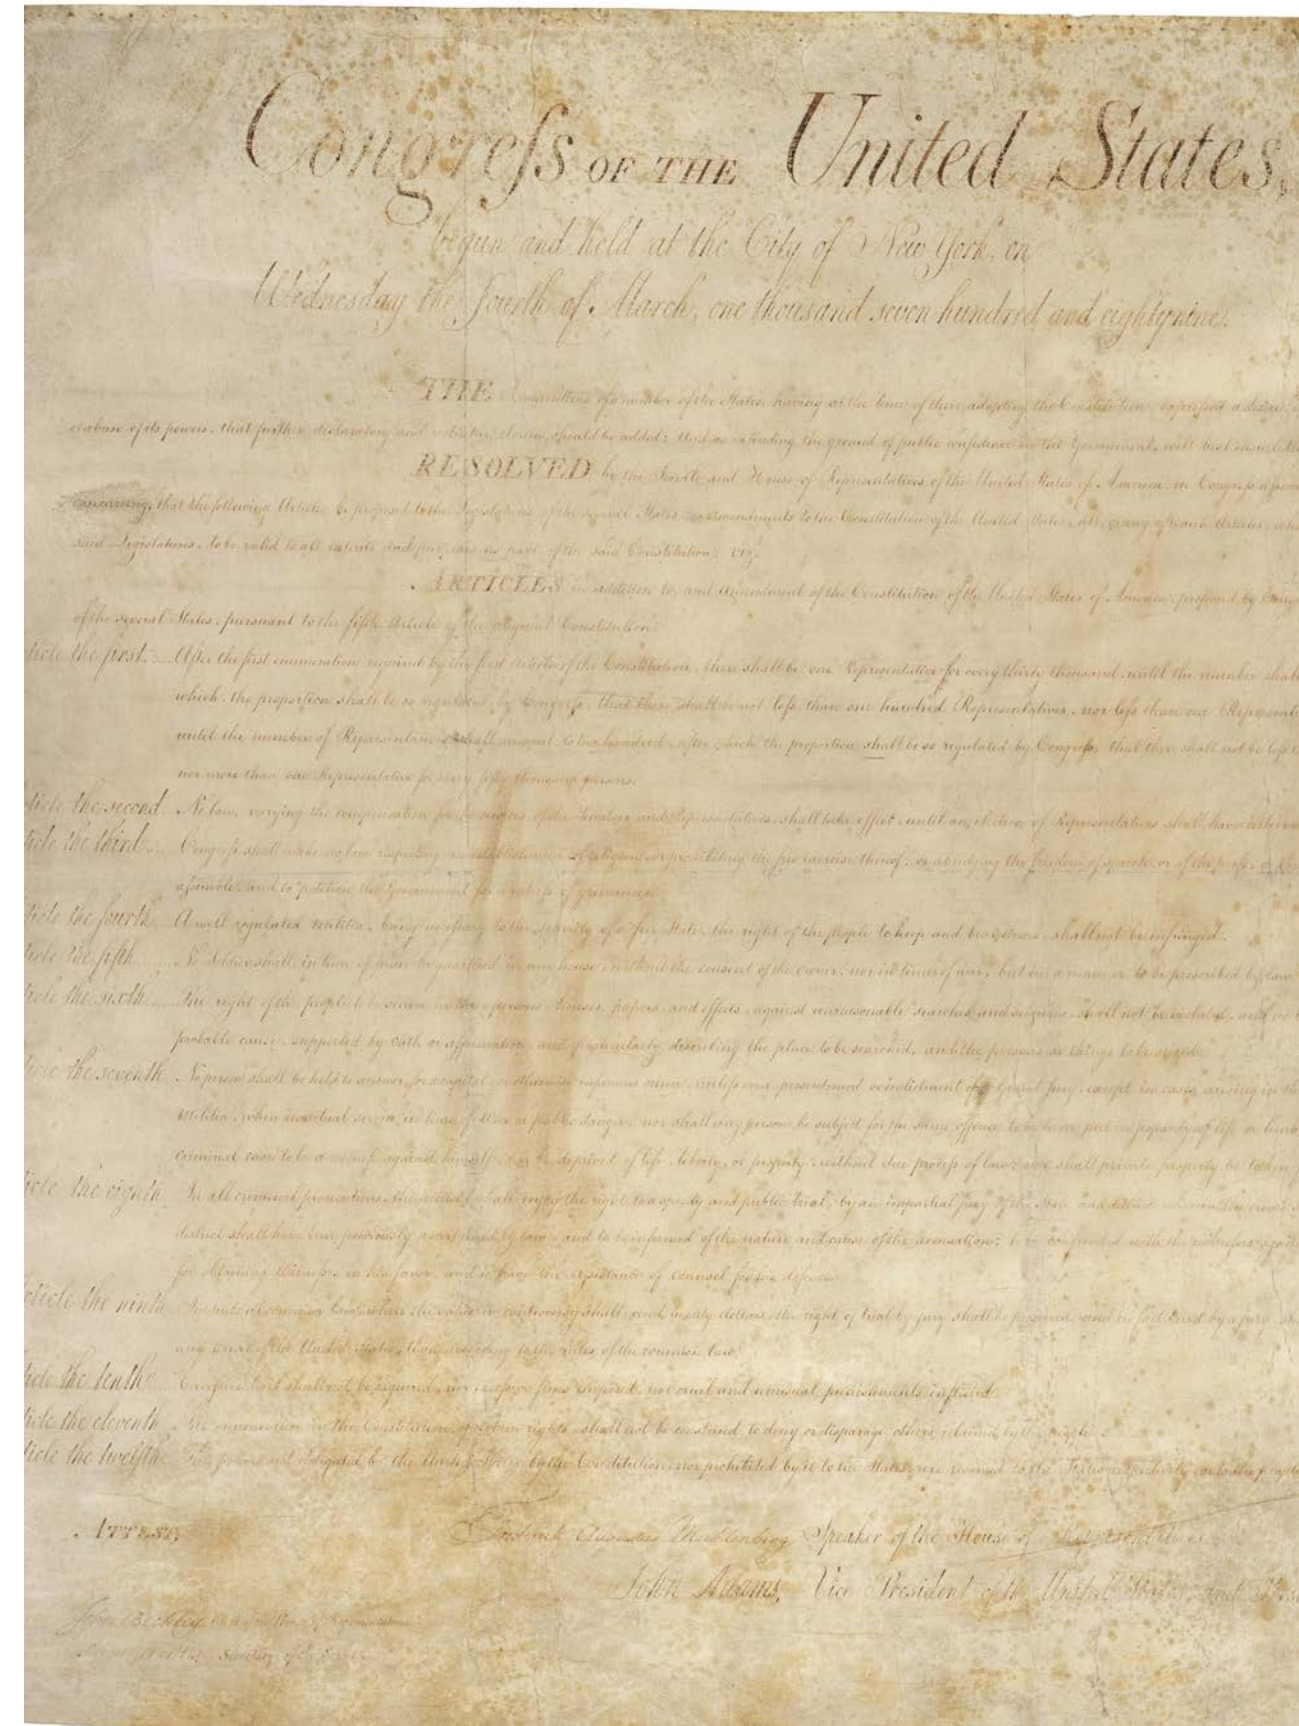 Congress OF THE United States,
begun and held at the City of New York, on
Wednesday the fourth of March, one thousand seven hundred and eighty nine.
THE Conventions of a number of the States, having at the time of their adopting the Constitution, expressed a desire
or abuse of its powers, that further declaratory and restrictive clauses should be added: And as extending the ground of public confidence in the Government, will best insure the
RESOLVED by the Senate and House of Representatives of the United States of America in Congress assembled
concurring, that the following Articles be proposed to the Legislatures of the several States, as amendments to the Constitution of the United States, all, or any of which Articles, when
said Legislatures, to be valid to all intents and purposes, as part of the said Constitution; viz.
ARTICLES in addition to, and Amendment of the Constitution of the United States of America, proposed by Congress
of the several States, pursuant to the fifth Article of the original Constitution.
ticle the first.... After the first enumeration required by the first Article of the Constitution, there shall be one Representative for every thirty thousand, until the number shall
which, the proportion shall be so regulated by Congress, that there shall be not less than one hundred Representatives, nor less than one
until the number of Representatives shall amount to two hundred, after which the proportion shall be so regulated by Congress, that there shall not be less
nor more than one Representative for every fifty thousand persons.
ticle the second... No law, varying the compensation for the services of the Senators and Representatives, shall take effect, until an election of Representatives shall have intervened
ticle the third.... Congress shall make no law respecting an establishment of religion, or prohibiting the free exercise thereof; or abridging the freedom of speech, or of the press; or
assemble, and to petition the Government for a redress of grievances.
ticle the fourth.. A well regulated militia, being necessary to the security of a free State, the right of the people to keep and bear arms, shall not be infringed.
ticle the fifth.... No Soldier shall, in time of peace be quartered in any house, without the consent of the owner, nor in time of war, but in a manner to be prescribed by law.
ticle the sixth.... The right of the people to be secure in their persons, houses, papers, and effects, against unreasonable searches and seizures, shall not be violated, and no
probable cause, supported by oath or affirmation, and particularly describing the place to be searched, and the persons or things to be seized.
ticle the seventh. No person shall be held to answer for a capital, or otherwise infamous crime, unless on a presentment or indictment of a Grand Jury, except in cases arising in the
Militia, when in actual service in time of War or public danger; nor shall any person be subject for the same offence to be twice put in jeopardy of life or limb
criminal case to be a witness against himself, nor be deprived of life, liberty, or property, without due process of law; nor shall private property be taken
ticle the eighth. In all criminal prosecutions, the accused shall enjoy the right to a speedy and public trial, by an impartial jury of the State and district wherein the crime
district shall have been previously ascertained by law, and to be informed of the nature and cause of the accusation; to be confronted with the witnesses against
for obtaining witnesses in his favor, and to have the assistance of counsel for his defence.
ticle the ninth. In suits at common law, where the value in controversy shall exceed twenty dollars, the right of trial by jury shall be preserved, and no fact tried by a jury,
any Court of the United States, than according to the rules of the common law.
ticle the tenth.. Excessive bail shall not be required, nor excessive fines imposed, nor cruel and unusual punishments inflicted.
ticle the eleventh. The enumeration in the Constitution, of certain rights, shall not be construed to deny or disparage others retained by the people.
ticle the twelfth. The powers not delegated to the United States by the Constitution, nor prohibited by it to the States, are reserved to the States respectively, or to the people
ATTEST,
Frederick Augustus Muhlenberg Speaker of the House of Representatives
John Adams, Vice President of the United States, and
John Beckley, Clerk of the House of Representatives.
Secretary of the Senate.